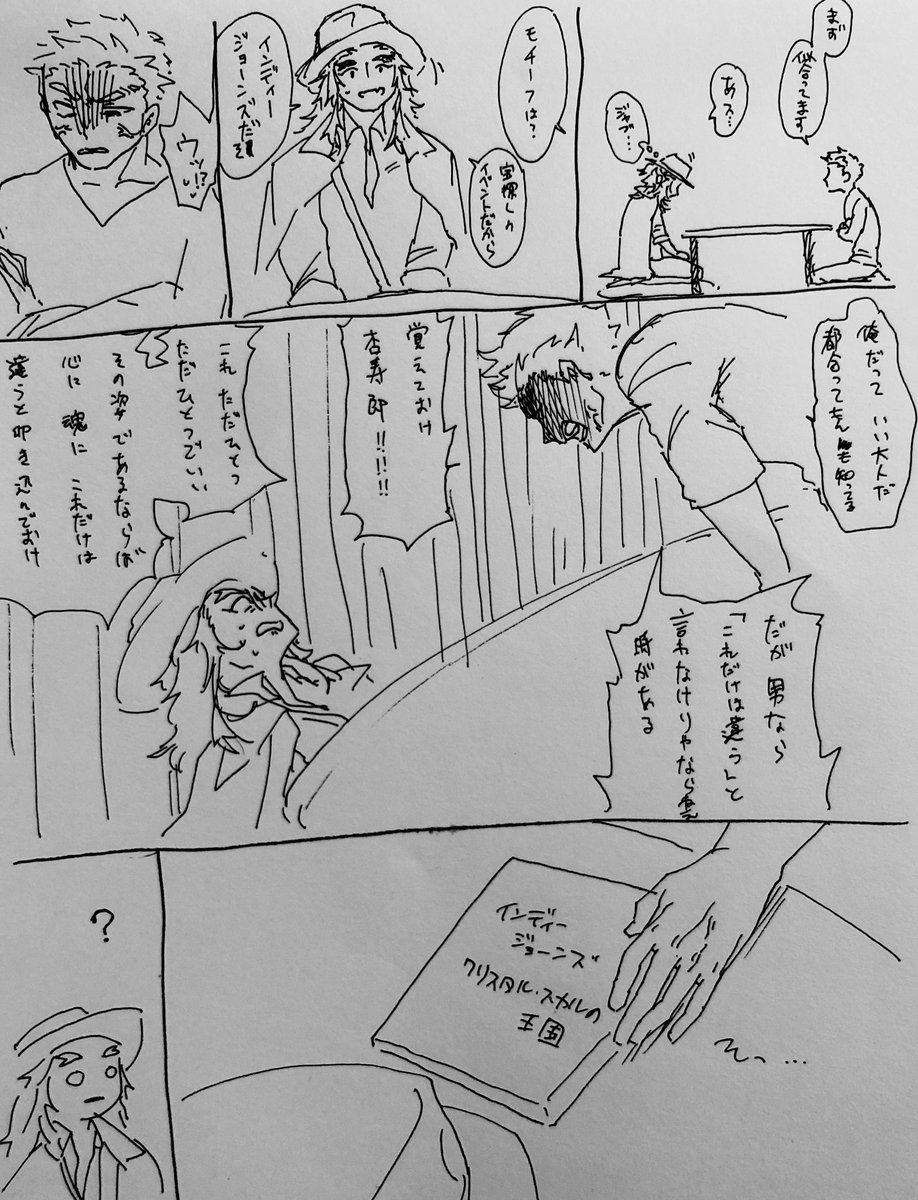 まず
似合ってます
あス…
ジャブ…
モチーフは？
宝探しの
イベントだから
インディー
ジョーンズだ！
ウッ!?
俺だって いい大人だ
都合って
だが 男なら
「これだけは違う」と
言わなけりゃならねえ
時がある
覚えておけ
杏寿郎!!!!!
これ ただひとつ
ただひとつでいい
その姿であるならば
心に 魂に これだけは
違うと叩き込んでおけ
インディー
ジョーンズ
クリスタル・スカルの
王国
そっ…
?